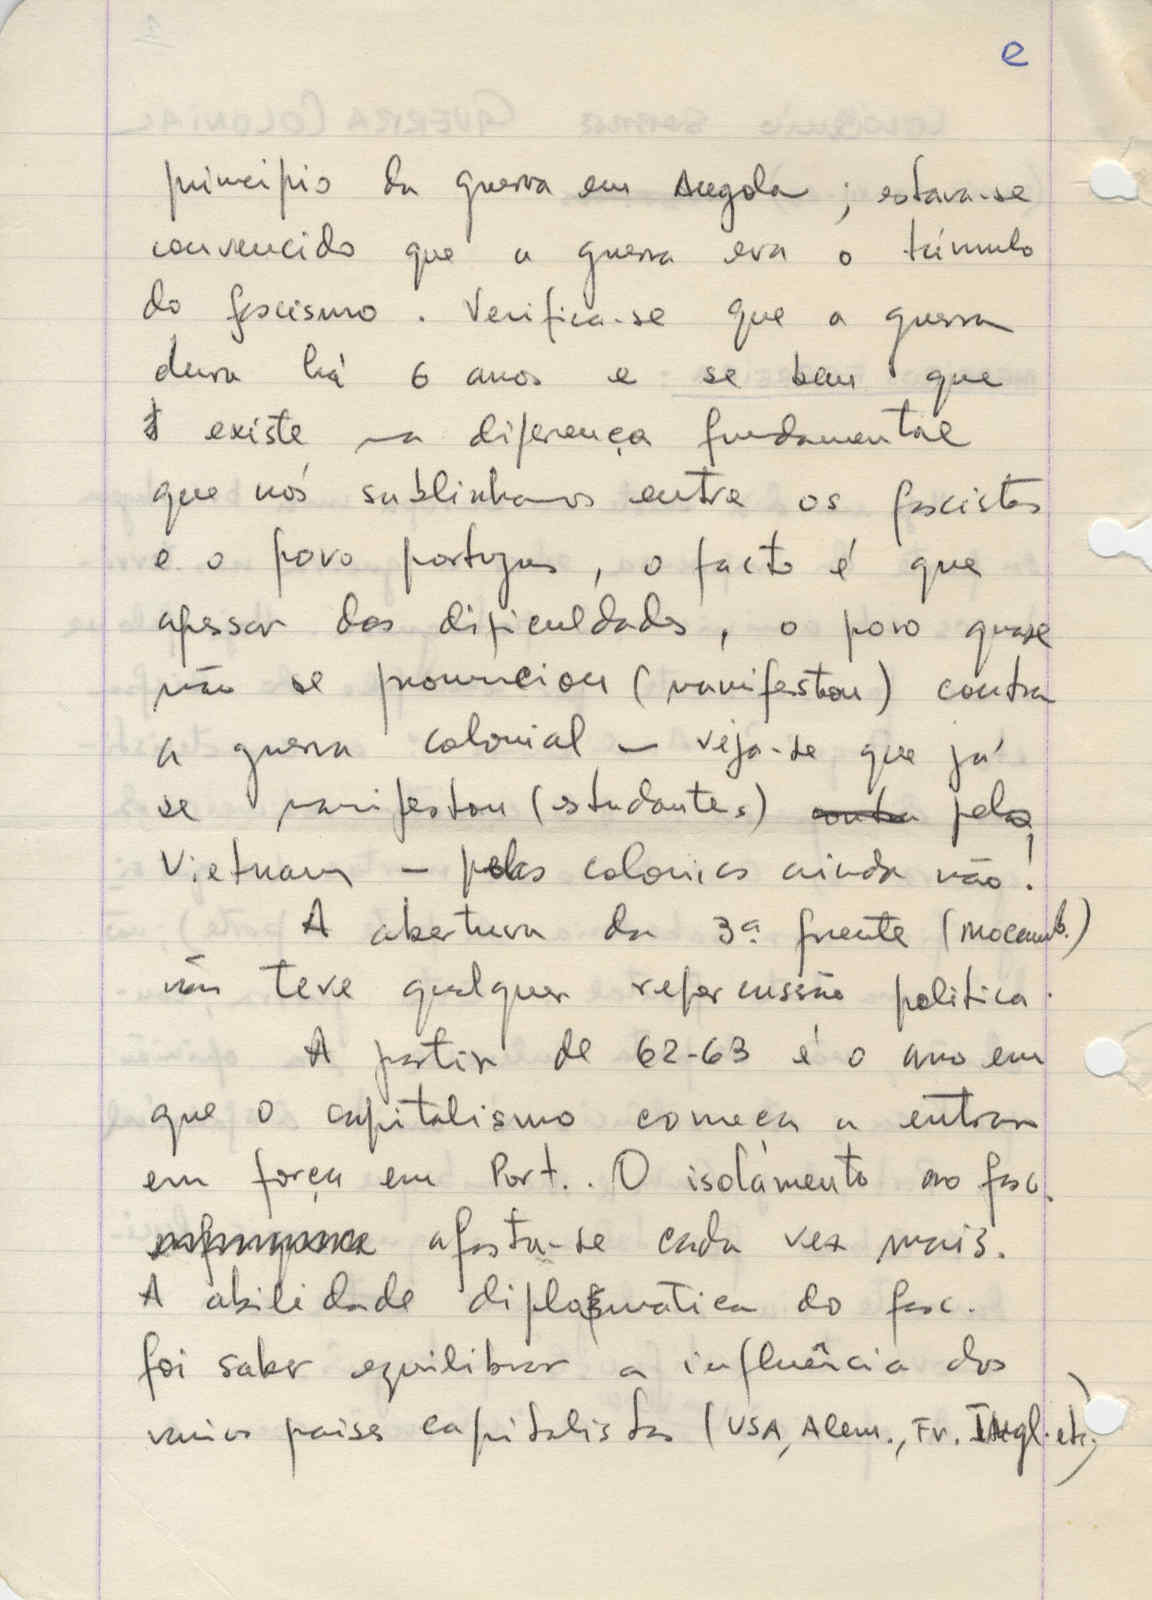 e
principio da guerra em Angola ; estava-se
convencido que a guerra era o túmulo
do fascismo . Verifica-se que a guerra
dura há 6 anos e se bem que
existe na diferença fundamental
que nós sublinhamos entre os fascistas
e o povo portugues , o facto é que
apessar das dificuldades , o povo quase
não se pronunciou ( manifestou ) contra
a guerra colonial — veja-se que já
se manifestou ( estudantes ) contra pelo
Vietnam — pelas colonias ainda não !
A abertura da 3ª frente ( Mocamb. )
não teve qualquer repercussão politica .
A partir de 62-63 é o ano em
que o capitalismo começa a entrar
em força em Port. . O isolámento ao fasc.
afasta-se cada vez mais .
A abilidade diplomática do fasc .
foi saber equilibrar a influência dos
varios paises capitalistas ( USA , Alem. , Fr. Ingl. etc. )